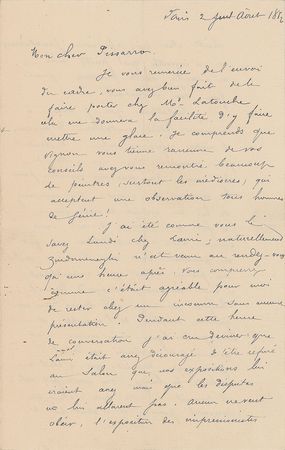 Paris 2 Août 188
Mon cher Pissarro.
Je vous remercie de l'envoi
du cadre, vous avez bien fait de le
faire porter chez Mr Latouche
cela me donnera la facilité d'y faire
mettre une glace. Je comprends que
Vignon vous tienne rancune de vos
conseils avez vous rencontré beaucoup
de peintres, surtout les médiocres, qui
acceptent une observation tous hommes
de génie!
J'ai été comme vous le
savez Lundi chez; naturellement
Zandomeneghi n'est venu au rendez-vous
qu'une heure après. Vous comprenez
comme c'était agréable pour moi
de rester chez un inconnu sans aucune
présentation. Pendant cette heure
de conversation j'ai cru deviner que
était assez découragé d'être refusé
au Salon que nos expositions lui
iraient assez mais que les disputes
ne lui allaient pas. Aucun ne veut
obéir, l'exposition des impressionnistes